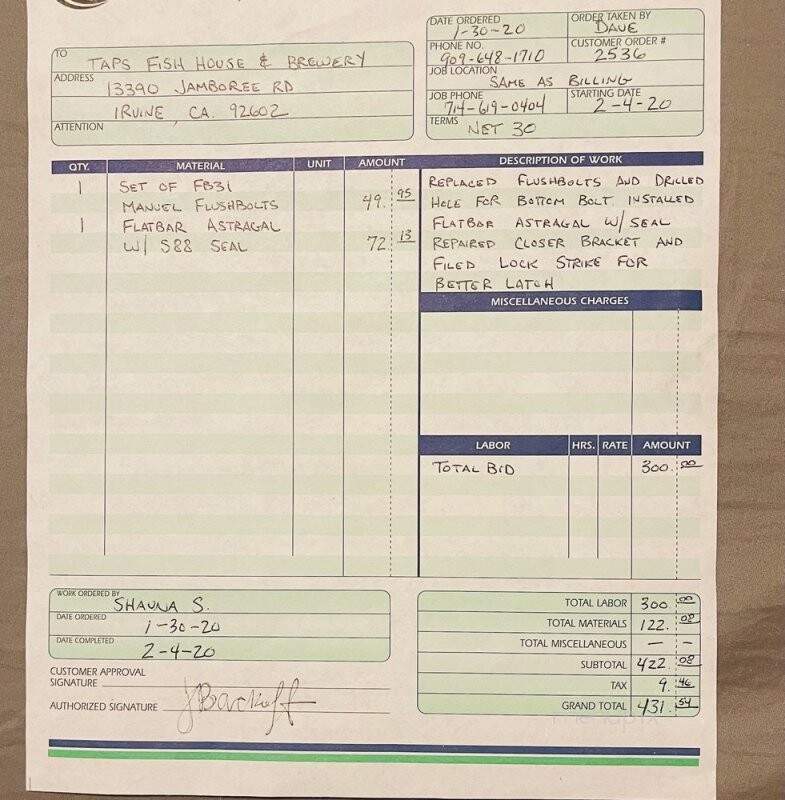 DATE ORDERED 1-30-20
ORDER TAKEN BY DAVE
PHONE NO. 909-648-1710
CUSTOMER ORDER # 2536
JOB LOCATION SAME AS BILLING
JOB PHONE 714-619-0404
STARTING DATE 2-4-20
TERMS NET 30
TO TAPS FISH HOUSE & BREWERY
ADDRESS 13390 JAMBOREE RD
IRVINE, CA. 92602
ATTENTION
QTY. MATERIAL UNIT AMOUNT
1 SET OF FB31
MANUEL FLUSHBOLTS 49.95
1 FLATBAR ASTRAGAL
W/ S88 SEAL 72.13
DESCRIPTION OF WORK
REPLACED FLUSHBOLTS AND DRILLED
HOLE FOR BOTTOM BOLT INSTALLED
FLATBAR ASTRAGAL W/ SEAL
REPAIRED CLOSER BRACKET AND
FILED LOCK STRIKE FOR
BETTER LATCH
MISCELLANEOUS CHARGES
LABOR HRS. RATE AMOUNT
TOTAL BID 300.00
WORK ORDERED BY SHAUNA S.
DATE ORDERED 1-30-20
DATE COMPLETED 2-4-20
CUSTOMER APPROVAL
SIGNATURE
AUTHORIZED SIGNATURE
TOTAL LABOR 300.00
TOTAL MATERIALS 122.08
TOTAL MISCELLANEOUS — –
SUBTOTAL 422.08
TAX 9.46
GRAND TOTAL 431.54